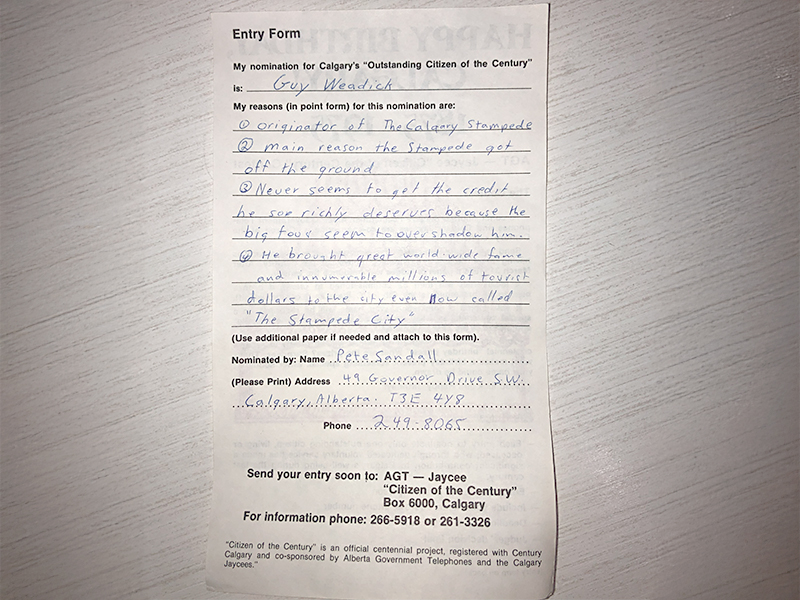 Entry Form
My nomination for Calgary's "Outstanding Citizen of the Century"
is: Guy Weadick
My reasons (in point form) for this nomination are:
① originator of The Calgary Stampede
② main reason the Stampede got
off the ground
③ Never seems to get the credit
he soe richly deserves because the
big four seem to overshadow him.
④ He brought great world-wide fame
and innumerable millions of tourist
dollars to the city even now called
"The Stampede City"
(Use additional paper if needed and attach to this form).
Nominated by: Name Pete Sandall
(Please Print) Address 49 Governor Drive S.W.
Calgary, Alberta. T3E 4Y8
Phone 249-8065
Send your entry soon to: AGT — Jaycee
"Citizen of the Century"
Box 6000, Calgary
For information phone: 266-5918 or 261-3326
"Citizen of the Century" is an official centennial project, registered with Century
Calgary and co-sponsored by Alberta Government Telephones and the Calgary
Jaycees."